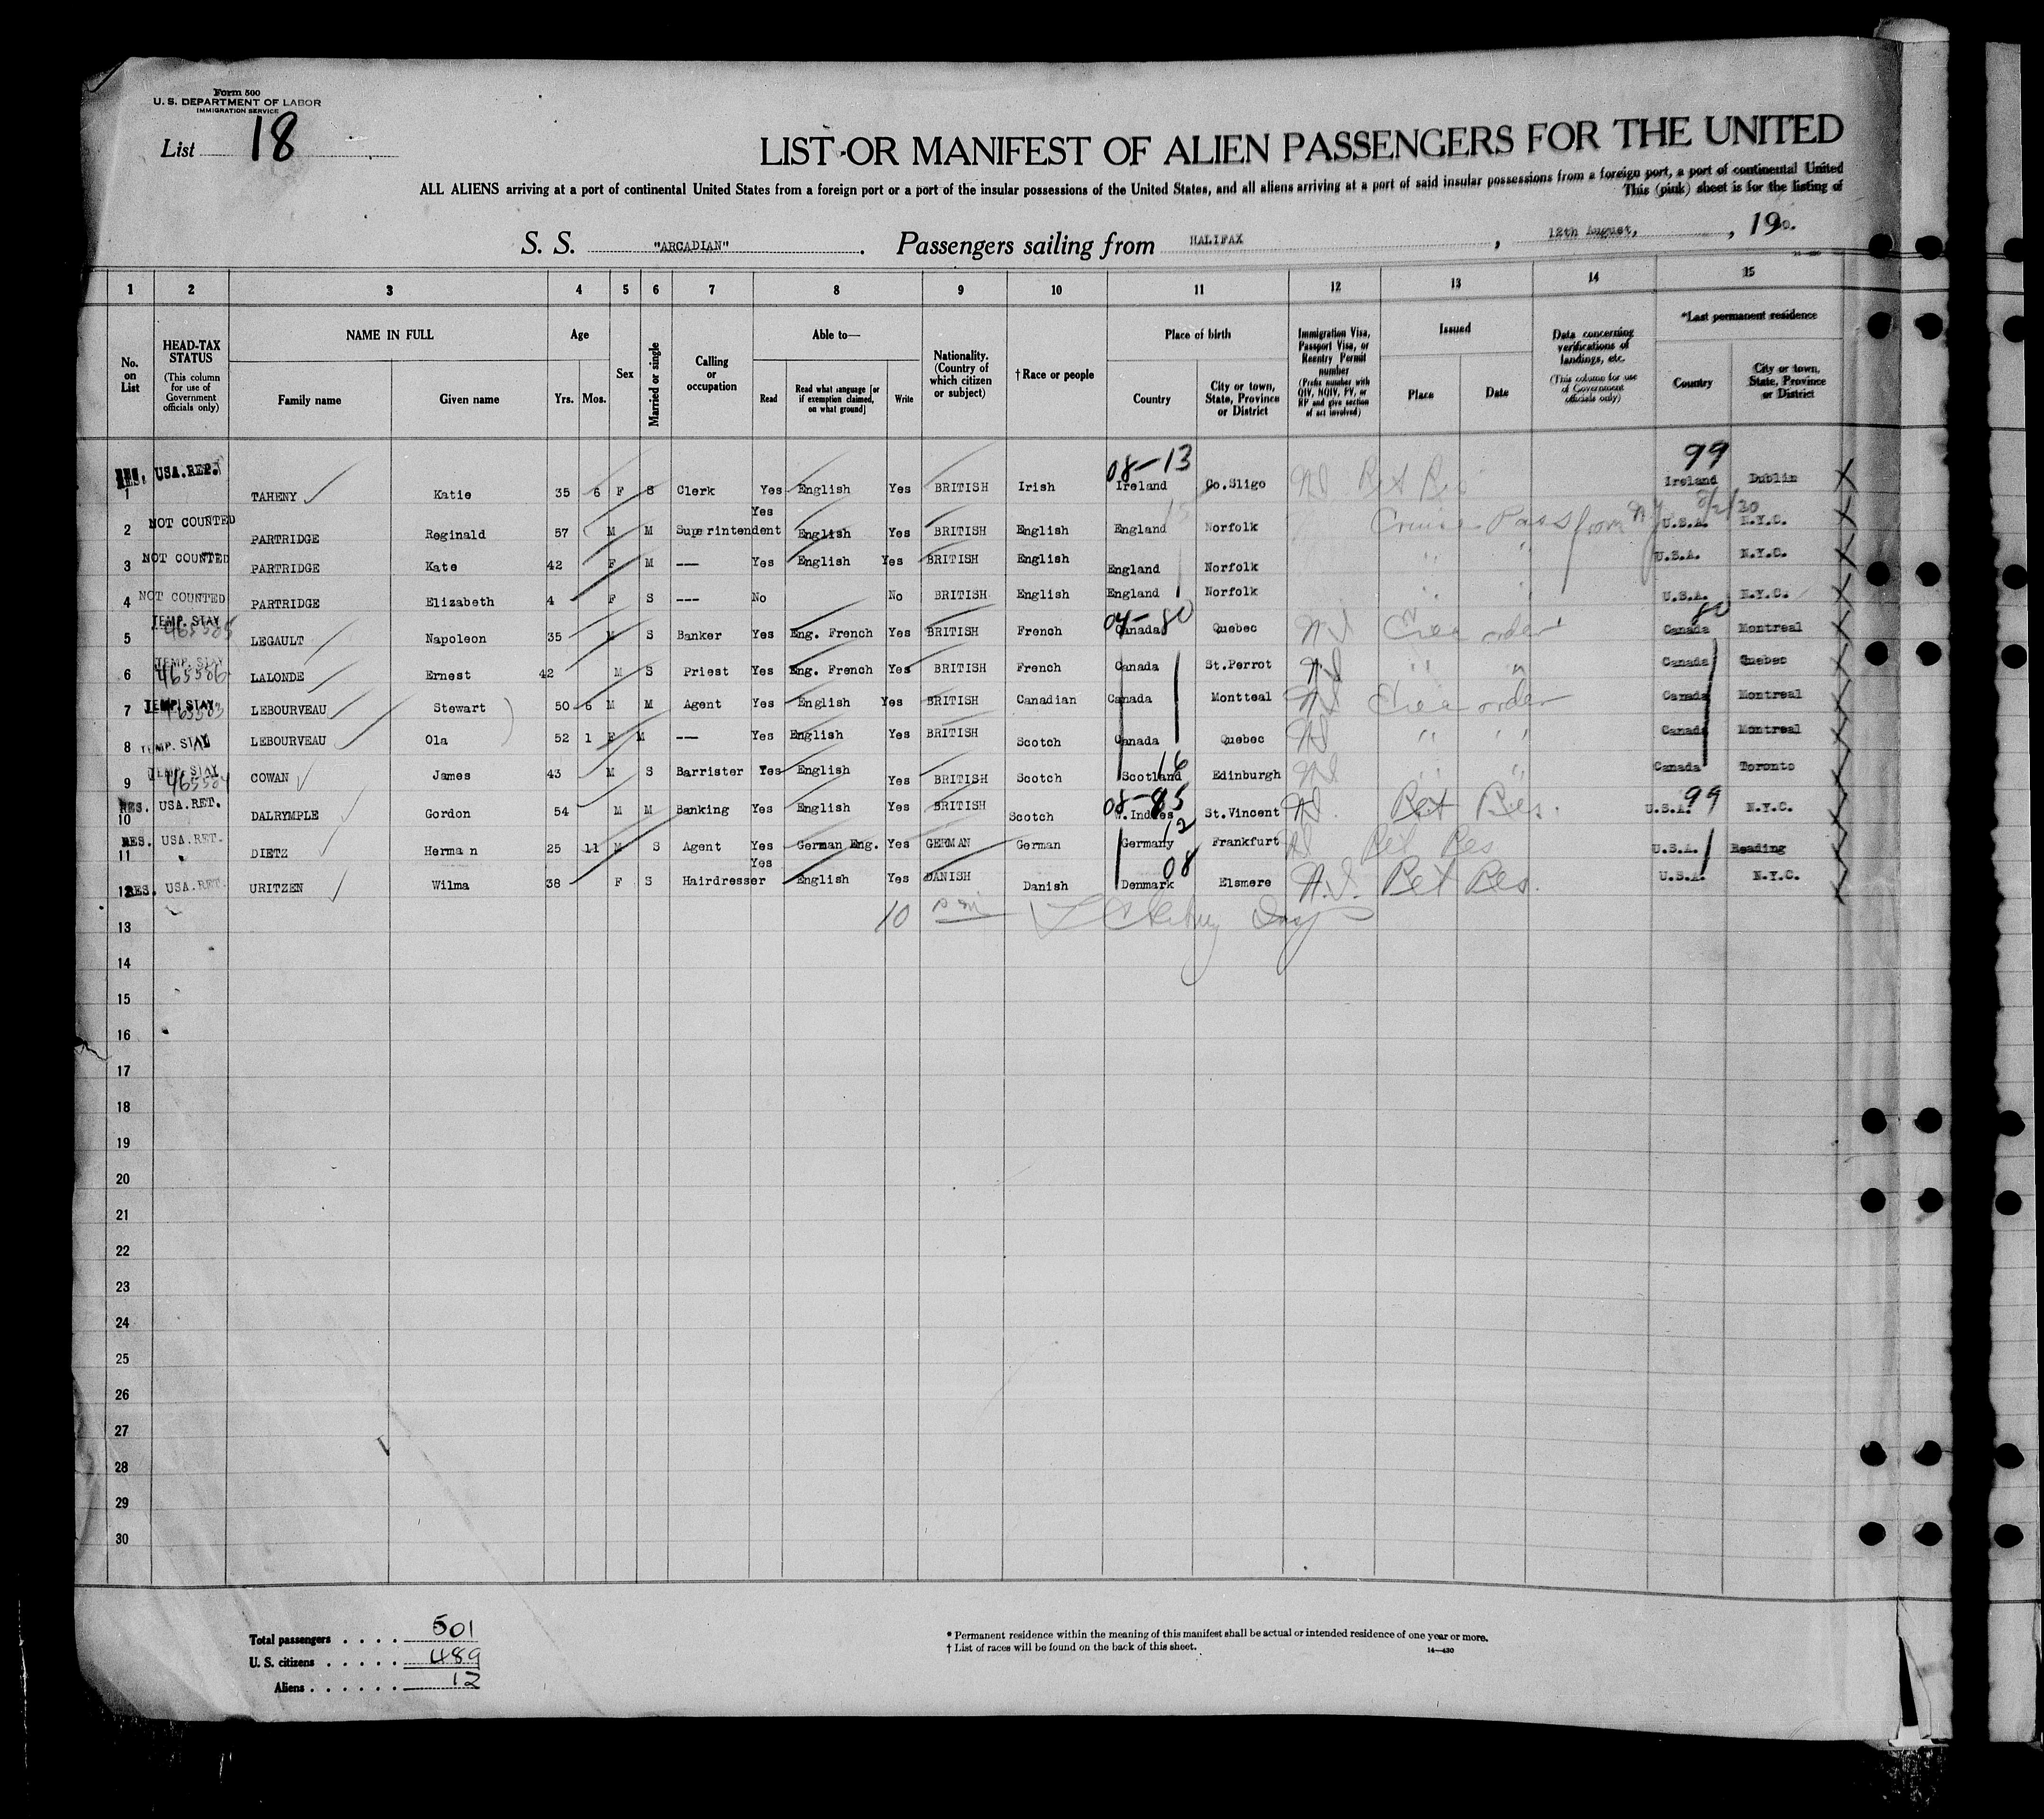 Form 500
U. S. DEPARTMENT OF LABOR
IMMIGRATION SERVICE
List 18
LIST OR MANIFEST OF ALIEN PASSENGERS FOR THE UNITED
ALL ALIENS arriving at a port of continental United States from a foreign port or a port of the insular possessions of the United States, and all aliens arriving at a port of said insular possessions from a foreign port, a port of continental United
This (pink) sheet is for the listing of
S. S. "ARCADIAN" . Passengers sailing from HALIFAX , 12th August, , 19 0.
1 2 3 4 5 6 7 8 9 10 11 12 13 14 15
No. on List
HEAD-TAX STATUS (This column for use of Government officials only)
NAME IN FULL Family name Given name
Age Yrs. Mos.
Sex
Married or single
Calling or occupation
Able to— Read Read what language [or if exemption claimed, on what ground] Write
Nationality. (Country of which citizen or subject)
†Race or people
Place of birth Country City or town, State, Province or District
Immigration Visa, Passport Visa, or Reentry Permit number (Prefix number with QIV, NQIV, PV, or RP and give section of act involved)
Issued Place Date
Data concerning verifications of landings, etc. (This column for use of Government officials only)
*Last permanent residence Country City or town, State, Province or District
08-13 99
1 RES. USA. TAHENY Katie 35 6 F S Clerk Yes English Yes BRITISH Irish Ireland Co.Sligo Ret Res Ireland Dublin
2 NOT COUNTED PARTRIDGE Reginald 57 M M Superintendent Yes English Yes BRITISH English England Norfolk Cruise Pass from N.Y. 8/2/30 U.S.A. N.Y.C.
3 NOT COUNTED PARTRIDGE Kate 42 F M --- Yes English Yes BRITISH English England Norfolk " " U.S.A. N.Y.C.
4 NOT COUNTED PARTRIDGE Elizabeth 4 F S --- No No BRITISH English England Norfolk " " U.S.A. N.Y.C.
04-80 80
5 TEMP. STAY 465505 LEGAULT Napoleon 35 M S Banker Yes Eng. French Yes BRITISH French Canada Quebec order Canada Montreal
6 TEMP. STAY 465506 LALONDE Ernest 42 M S Priest Yes Eng. French Yes BRITISH French Canada St.Perrot " " Canada Quebec
7 TEMP. STAY 465503 LEBOURVEAU Stewart 50 6 M M Agent Yes English Yes BRITISH Canadian Canada Montteal order Canada Montreal
8 TEMP. STAY LEBOURVEAU Ola 52 1 F M --- Yes English Yes BRITISH Scotch Canada Quebec " " Canada Montreal
9 TEMP. STAY 465504 COWAN James 43 M S Barrister Yes English Yes BRITISH Scotch Scotland 16 Edinburgh " " Canada Toronto
10 RES. USA. RET. DALRYMPLE Gordon 54 M M Banking Yes English Yes BRITISH Scotch 08-85 W.Indies St.Vincent Ret Res. U.S.A. 99 N.Y.C.
11 RES. USA. RET. DIETZ Herman 25 11 M S Agent Yes German Eng. Yes GERMAN German 12 Germany Frankfurt Ret Res U.S.A. Reading
12 RES. USA. RET. URITZEN Wilma 38 F S Hairdresser Yes English Yes DANISH Danish 08 Denmark Elsmere Ret Res. U.S.A. N.Y.C.
10
13
14
15
16
17
18
19
20
21
22
23
24
25
26
27
28
29
30
Total passengers . . . . 501
U. S. citizens . . . . . 489
Aliens . . . . . . 12
* Permanent residence within the meaning of this manifest shall be actual or intended residence of one year or more.
† List of races will be found on the back of this sheet.
14—430